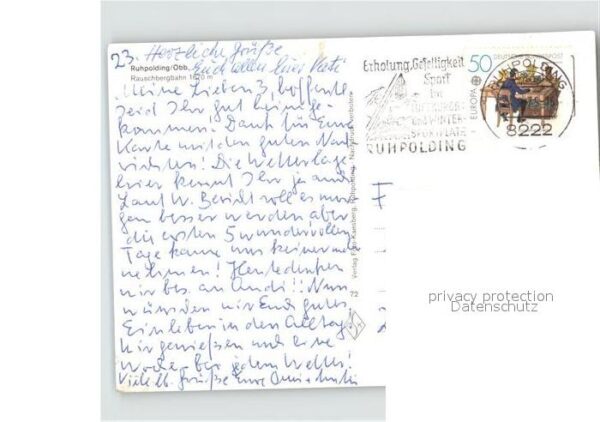 23. Herzliche Grüße
Euch allen hier Kati
Ruhpolding/Obb.
Rauschbergbahn 1670 m
Meine Lieben 3, hoffentl.
seid Ihr gut heimge-
kommen. Dank für Eure
Karte mit den guten Nach-
richten! Die Wetterlage
hier kennt Ihr ja und
laut W. Bericht soll es mor-
gen besser werden aber
die ersten 5 wundervollen
Tage kann uns keiner mehr
nehmen! Heute denken
wir bes. an Andi!! Nun
wünschen wir Euch gutes
Einleben in den Alltag
wir geniessen noch eine
Woche bei jedem Wetter!
Viele lb. Grüße Eure
Verlag Foto Nachdruck verboten
72
Erholung, Geselligkeit
Sport
im
LUFTKURORT
UND WINTER-
SPORTPLATZ
RUHPOLDING
50 DEUTSCHE BUNDESPOST
EUROPA
RUHPOLDING
8222
privacy protection
Datenschutz